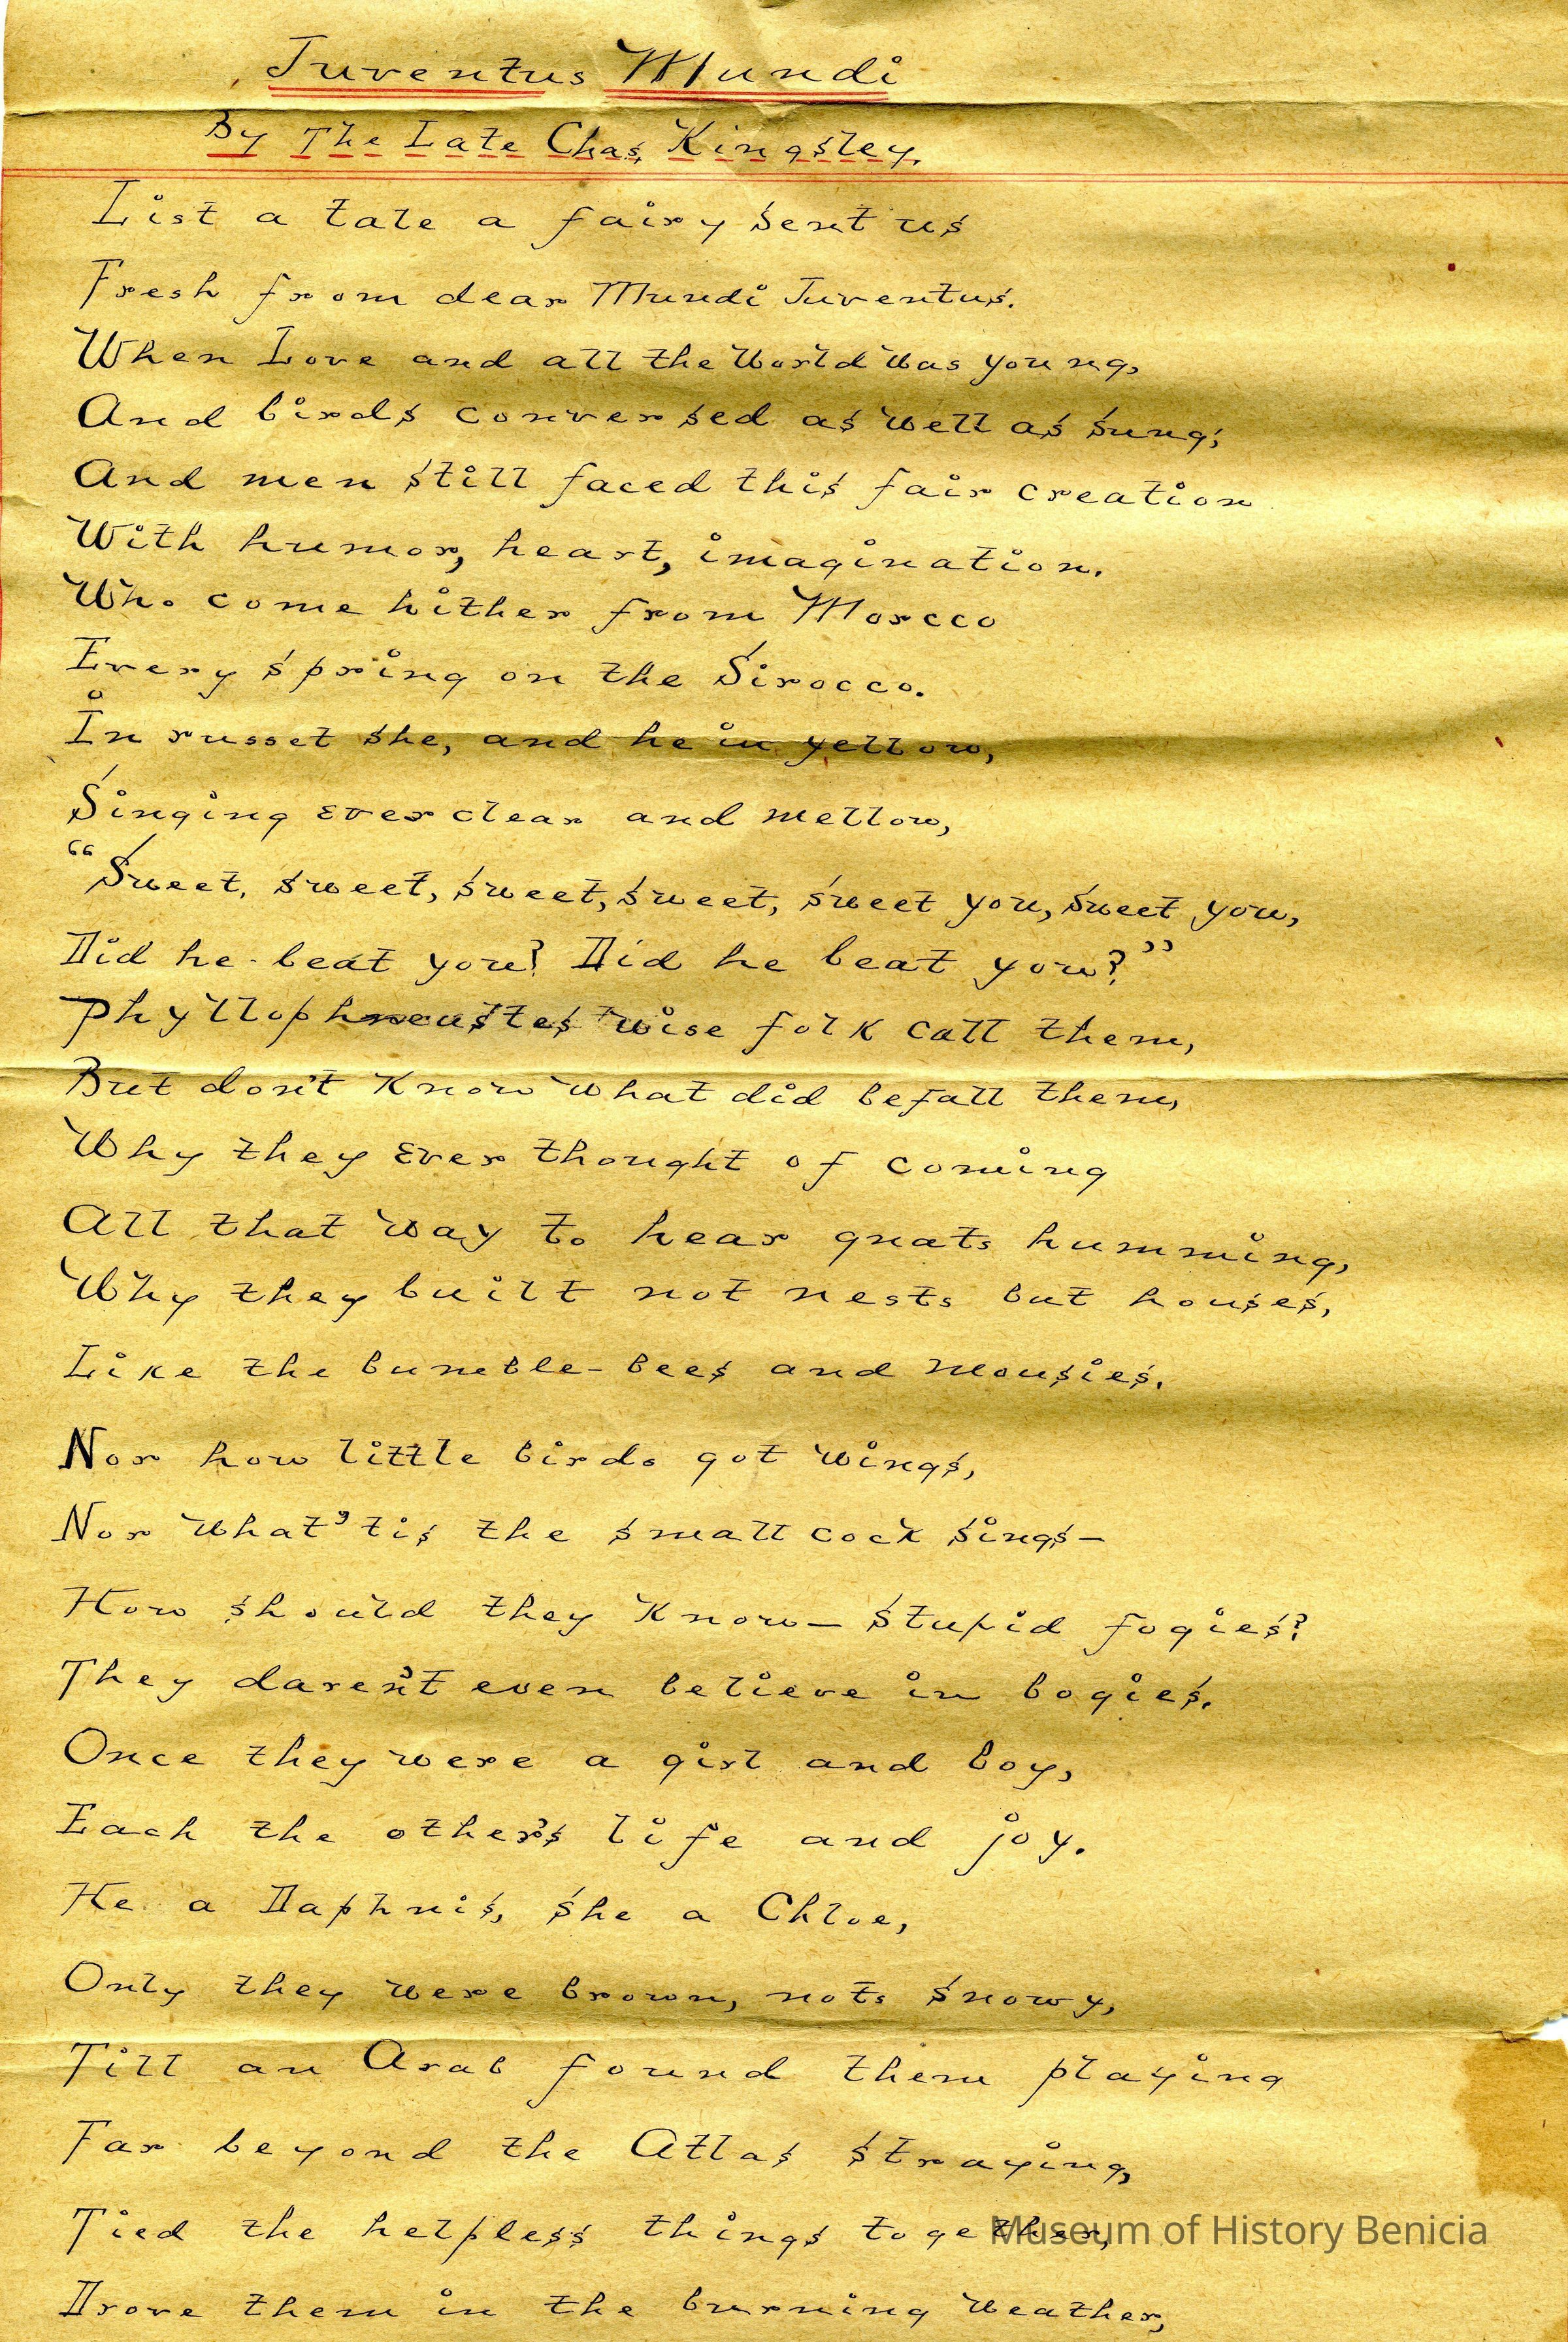 Juventus Mundi
By The Late Chas. Kingsley.
List a tale a fairy sent us
Fresh from dear Mundi Juventus.
When Love and all the World Was young,
And birds conversed as well as sung;
And men still faced this fair creation
With humor, heart, imagination.
Who come hither from Morcco
Every spring on the Sirocco.
In russet she, and he in yellow,
Singing ever clear and mellow,
"Sweet, sweet, sweet, sweet, sweet you, sweet you,
Did he beat you? Did he beat you?"
Phyllophneustes wise folk call them,
But don't Know What did befall them,
Why they Ever thought of coming
All that Way to hear gnats humming,
Why they built not nests but houses,
Like the bumble-bees and mousies.
Nor how little birds got wings,
Nor What 'tis the small cock sings—
How should they Know— stupid fogies?
They daren't even believe in bogies.
Once they were a girl and boy,
Each the other's life and joy.
He a Daphnis, She a Chloe,
Only they were brown, nots snowy,
Till an Arab found them playing
Far beyond the Atlas straying,
Tied the helpless things together,
Drove them in the burning Weather,
Museum of History Benicia